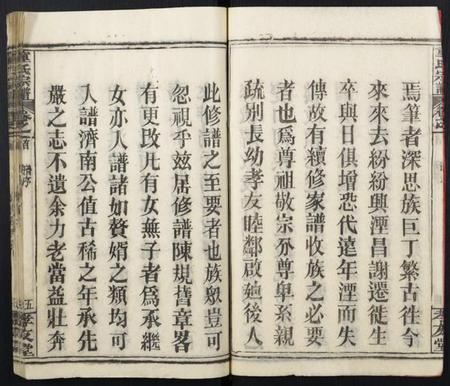 焉筆者深思族巨丁繁古徃今
來來去紛紛興湮昌謝遷徙生
卒與日俱增恐代遠年湮而失
傳故有續修家譜收族之必要
者也爲尊祖敬宗分尊卑系親
疏别長幼孝友睦鄰啟廸後人
孝友堂
童氏宗譜
此修譜之至要者也族衆豈可
忽視乎兹居修譜陳規揩章畧
有更改凡有女無子者爲承繼
女亦人譜諸如贅婿之類均可
入譜濟南公值古稀之年承先
嚴之志不遺余力老當益壯奔
五
孝友堂